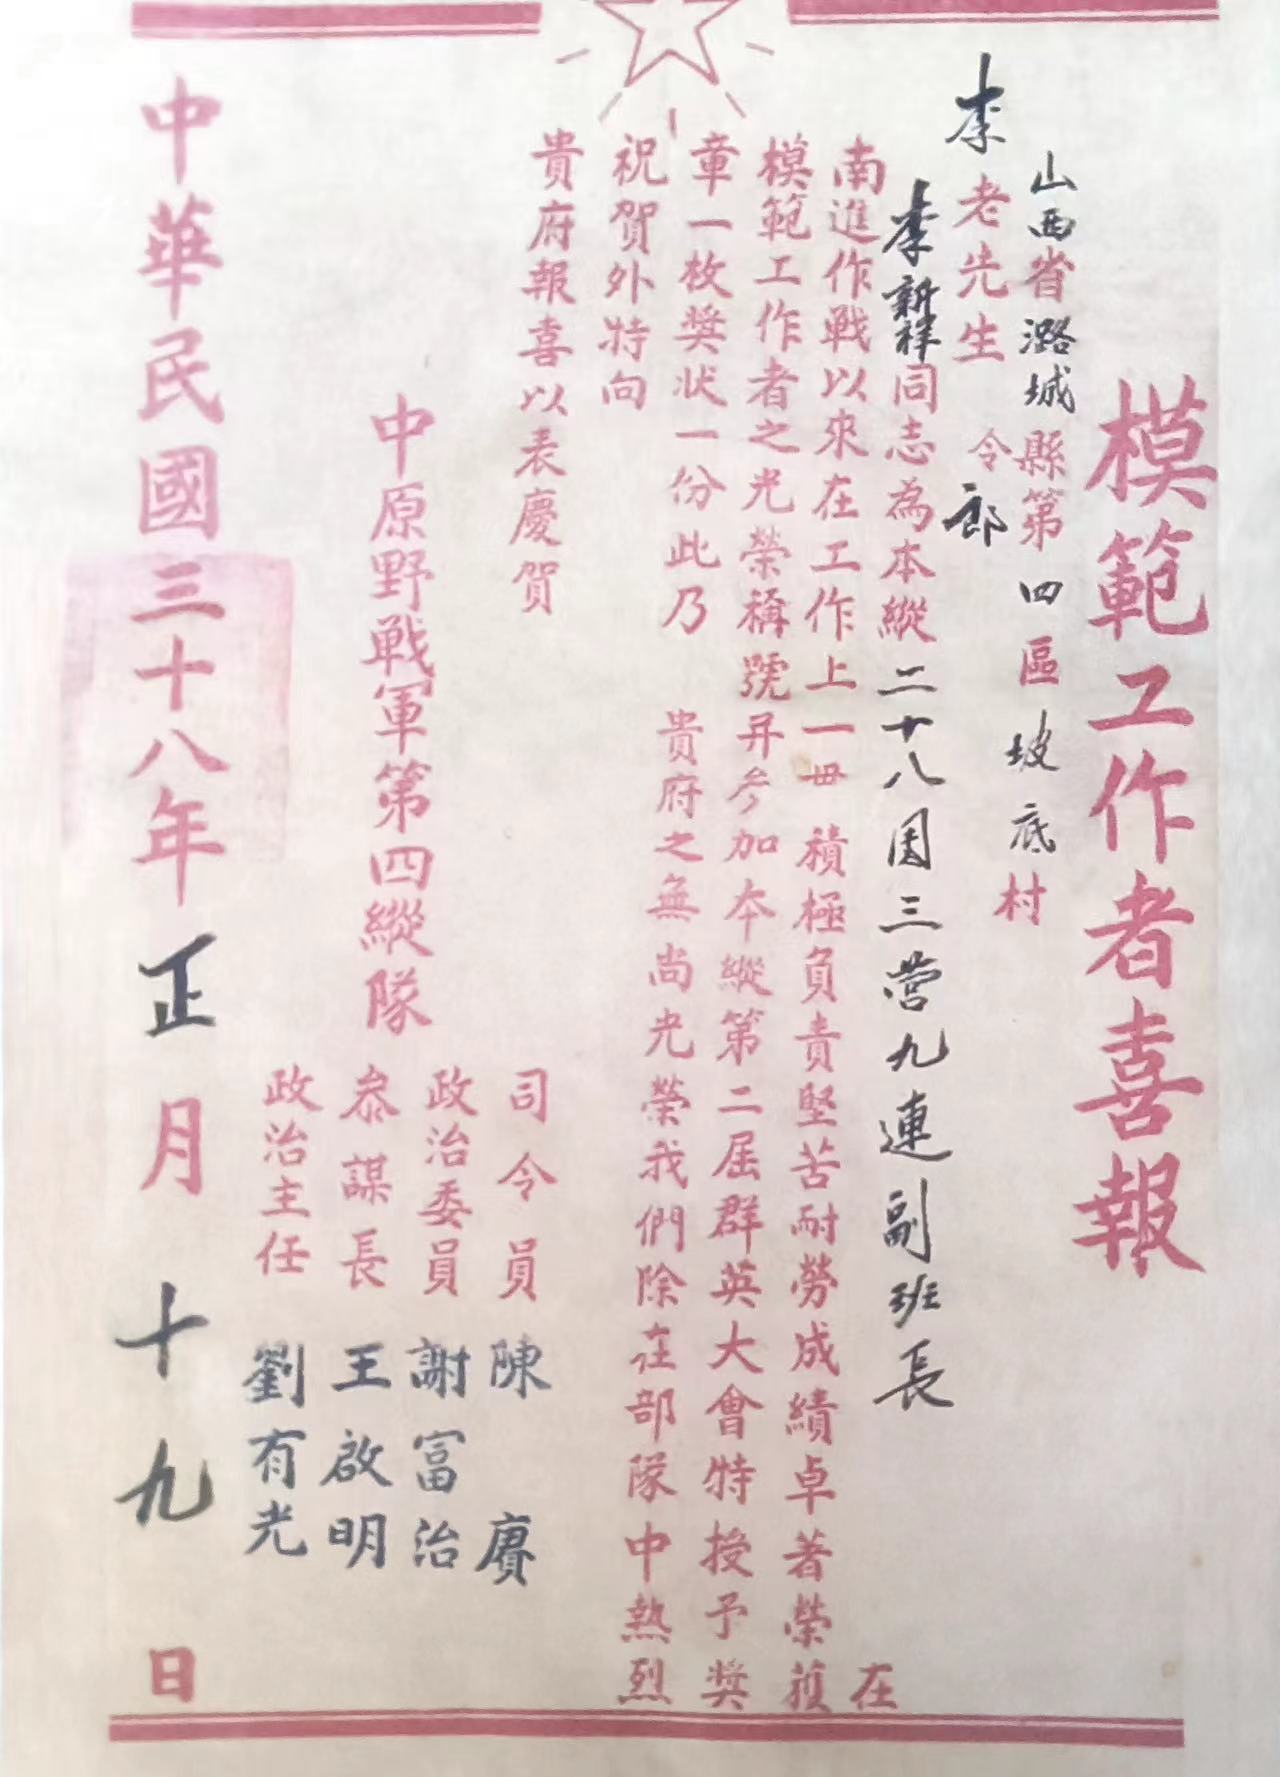 模範工作者喜報
山西省潞城縣第四區坡底村
李老先生 令郎
李新祥同志為本縱二十八团三营九連副班長在
南進作戰以來在工作上一毌積極負責堅苦耐勞成績卓著榮獲
模範工作者之光榮稱號并参加本縱第二屆群英大會特授予獎
章一枚獎狀一份此乃 貴府之無尚光榮我們除在部隊中熱烈
祝賀外特向
貴府報喜以表慶賀
中原野戰軍第四縱隊
司令員 陳賡
政治委員 謝富治
叅謀長 王啟明
政治主任 劉有光
中華民國三十八年正月十九日